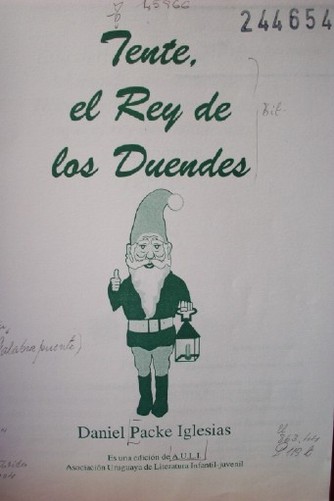 45866
244654
Tente,
el Rey de
los Duendes
Bib.
(Palabra puente)
Daniel Packe Iglesias
Es una edición de A.U.L.I.
Asociación Uruguaya de Literatura Infantil-juvenil